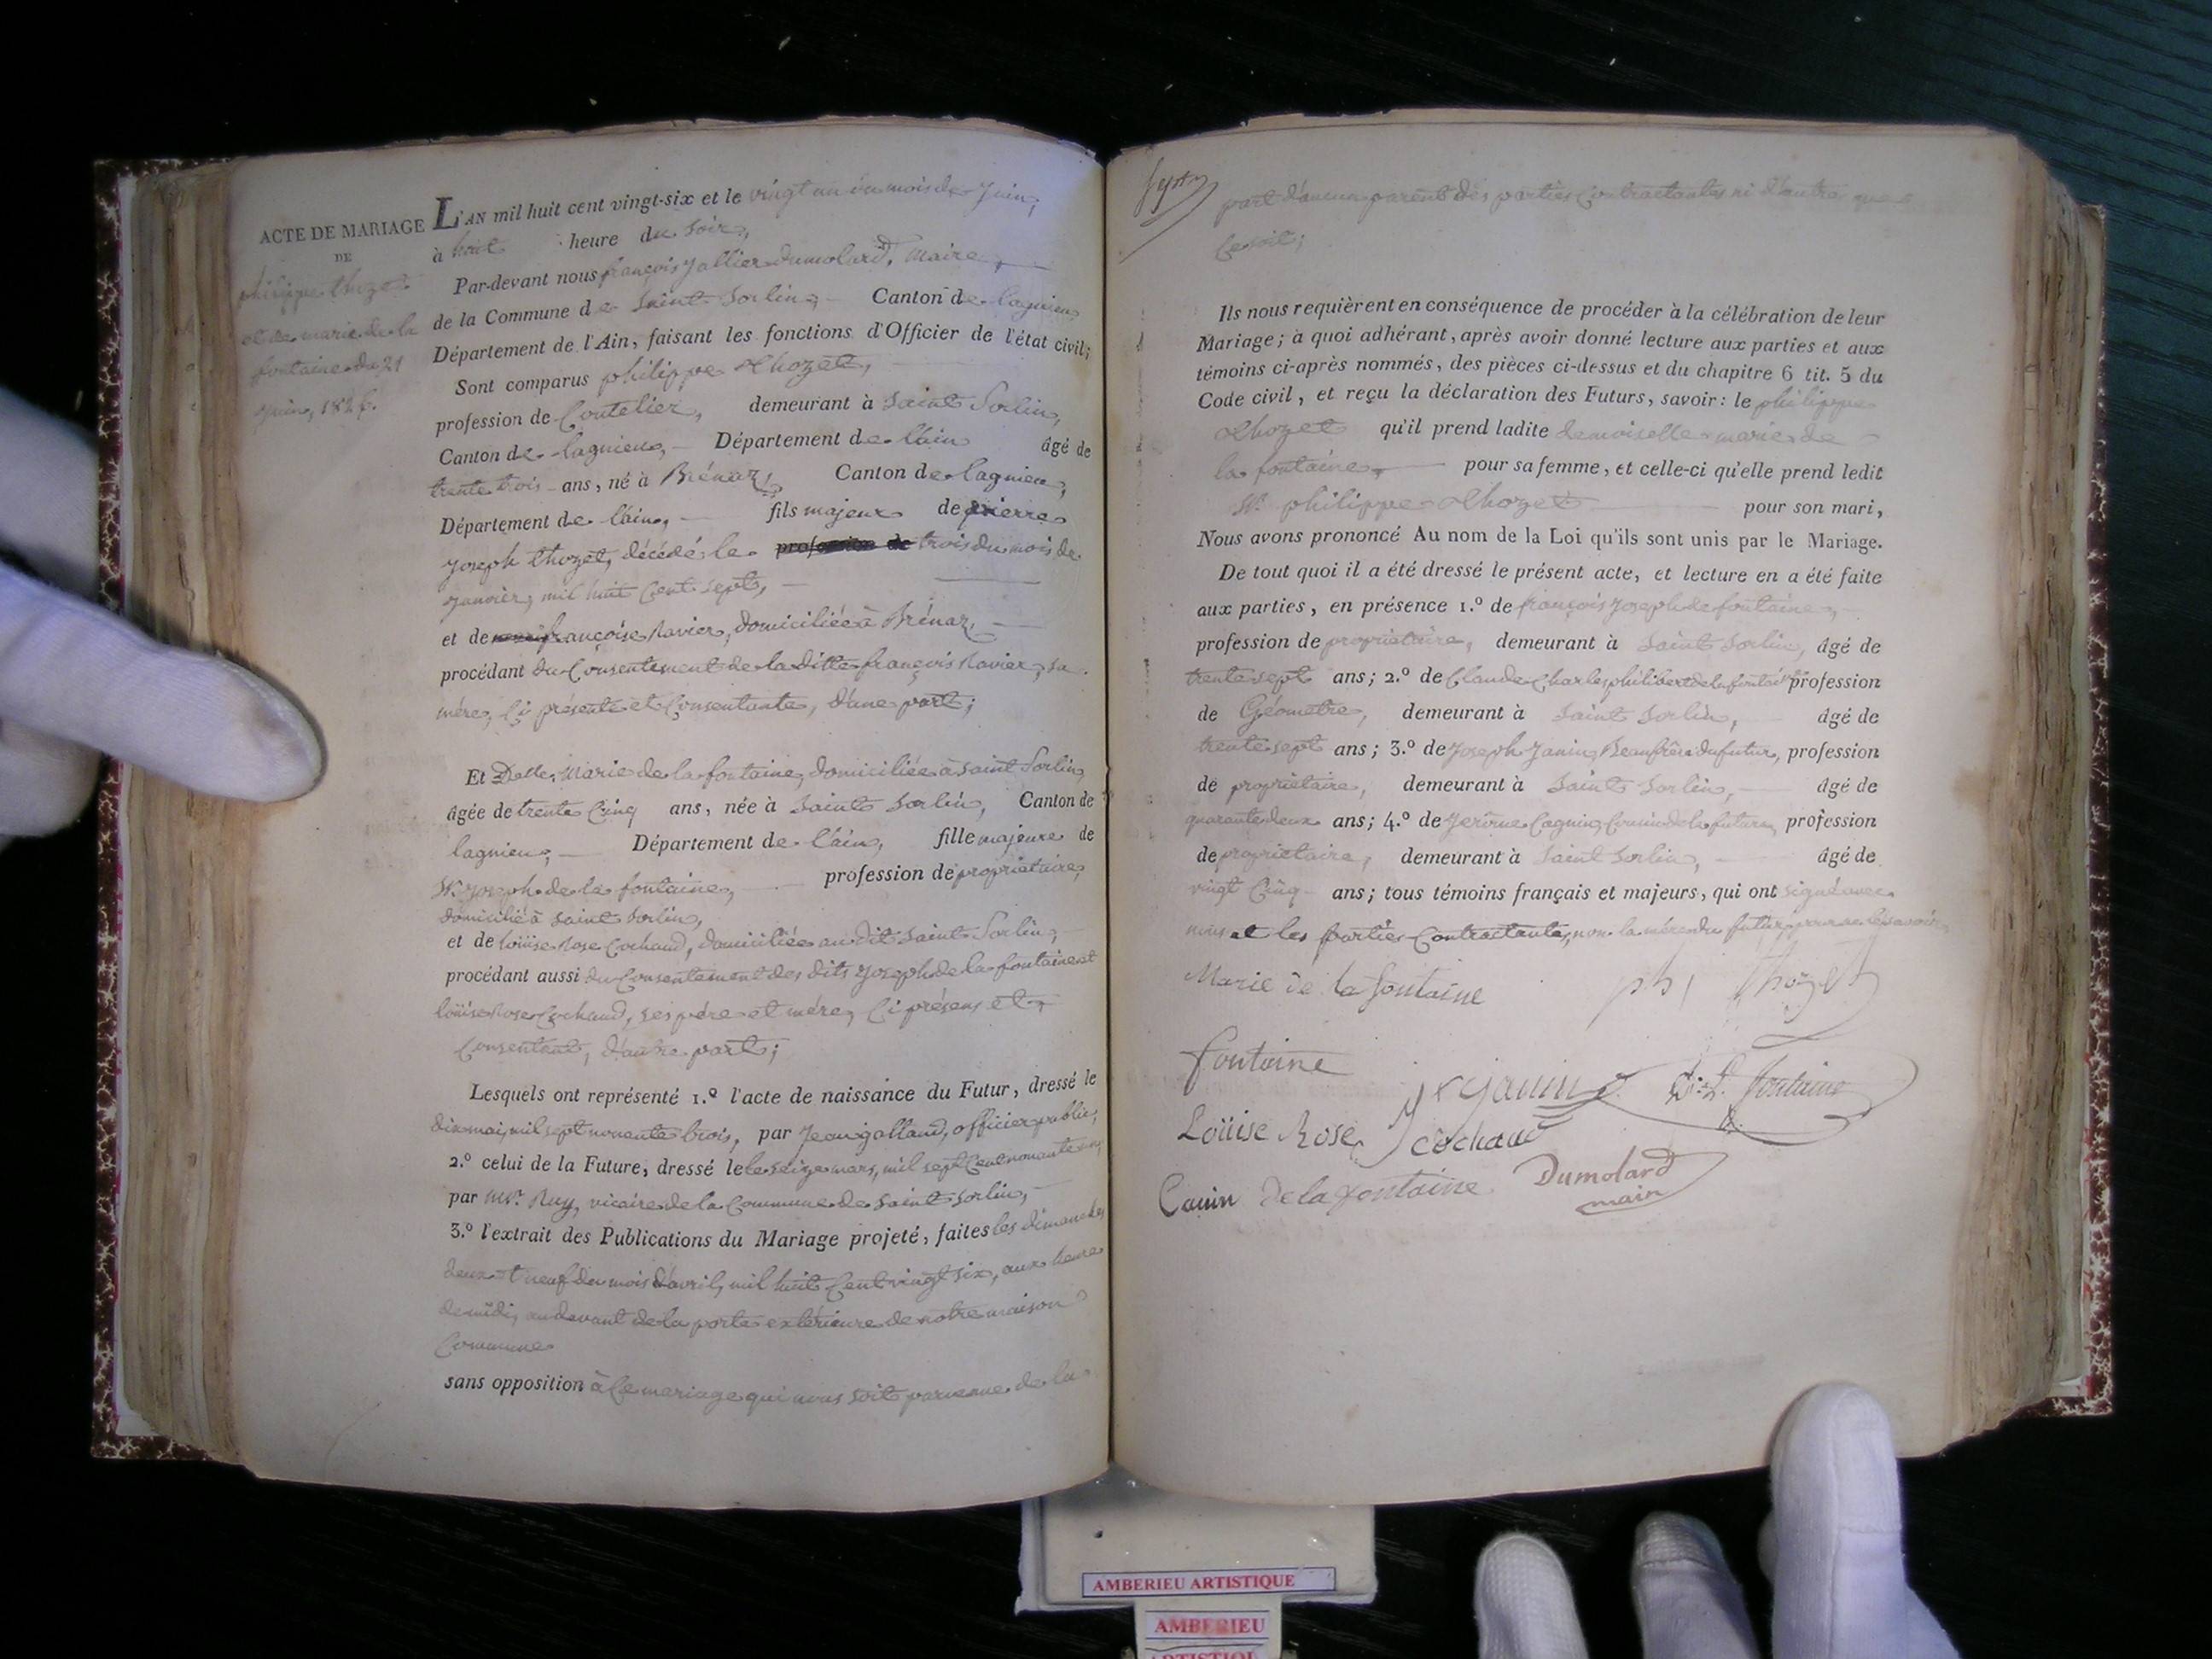 ACTE DE MARIAGE
DE
philippe thozet
et de marie de la
fontaine du 21
juin, 1826.
L'AN mil huit cent vingt-six et le vingt un du mois de juin,
à huit heure du soir,
Par-devant nous françois Jallier dumolard, maire,
de la Commune de Saint Sorlin, Canton de lagnieu,
Département de l'Ain, faisant les fonctions d'Officier de l'état civil;
Sont comparus philippe thozet,
profession de Coutelier, demeurant à Saint Sorlin,
Canton de lagnieu, Département de l'ain âgé de
trente trois ans, né à Brénaz, Canton de lagnieu,
Département de l'ain, fils majeur de pierre
joseph thozet, décédé le profession de trois du mois de
janvier, mil huit Cent sept,
et de françoise Ravier, domiciliée à Brénaz,
procédant du Consentement de la ditte françoise Ravier, sa
mère, Ci présente et Consentante, d'une part;
Et Delle Marie de la fontaine, domiciliée à Saint Sorlin,
âgée de trente Cinq ans, née à Saint Sorlin, Canton de
lagnieu, Département de l'ain, fille majeure de
Sr joseph de la fontaine, profession de propriétaire,
domicilié à Saint Sorlin,
et de loüise Rose Cochaud, domiciliée au dit Saint Sorlin,
procédant aussi du Consentement des dits joseph de la fontaine et
loüise Rose Cochaud, ses père et mère, Ci présens et
Consentant, d'autre part;
Lesquels ont représenté 1.º l'acte de naissance du Futur, dressé le
dix mai, mil sept nonente trois, par Jean galland, officier public,
2.º celui de la Future, dressé le le seize mars, mil sept Cent nonante un,
par Mr. Ruy, vicaire de la Commune de Saint Sorlin,
3.º l'extrait des Publications du Mariage projeté, faites les dimanches
deux et neuf du mois d'avril, mil huit Cent vingt six, aux heure
de midi, au devant de la porte extérieure de notre maison
Commune
sans opposition à Ce mariage qui nous soit parvenue de la
part d'aucun parent des parties Contractantes ni d'autre que
Ce soit;
Ils nous requièrent en conséquence de procéder à la célébration de leur
Mariage; à quoi adhérant, après avoir donné lecture aux parties et aux
témoins ci-après nommés, des pièces ci-dessus et du chapitre 6 tit. 5 du
Code civil, et reçu la déclaration des Futurs, savoir: le philippe
thozet qu'il prend ladite demoiselle marie de
la fontaine, pour sa femme, et celle-ci qu'elle prend ledit
Sr. philippe thozet pour son mari,
Nous avons prononcé Au nom de la Loi qu'ils sont unis par le Mariage.
De tout quoi il a été dressé le présent acte, et lecture en a été faite
aux parties, en présence 1.º de françois joseph de fontaine,
profession de propriétaire, demeurant à Saint Sorlin, âgé de
trente sept ans; 2.º de Claude Charles philibert de la fontaine profession
de Géomètre, demeurant à Saint Sorlin, âgé de
trente sept ans; 3.º de joseph Janin, Beaufrère du futur, profession
de propriétaire, demeurant à Saint Sorlin, âgé de
quarante deux ans; 4.º de Jerôme Cagnin, Cousin de la future, profession
de propriétaire, demeurant à Saint Sorlin, âgé de
vingt Cinq ans; tous témoins français et majeurs, qui ont signé avec
nous et les parties Contractantes, non la mère du futur pour ne le savoir
Marie de la fontaine phi thozet
fontaine
jh janin D. L. fontaine
Loüise Rose Cochaud
de la fontaine Dumolard
maire
AMBERIEU ARTISTIQUE
AMBERIEU
ARTISTIQUE